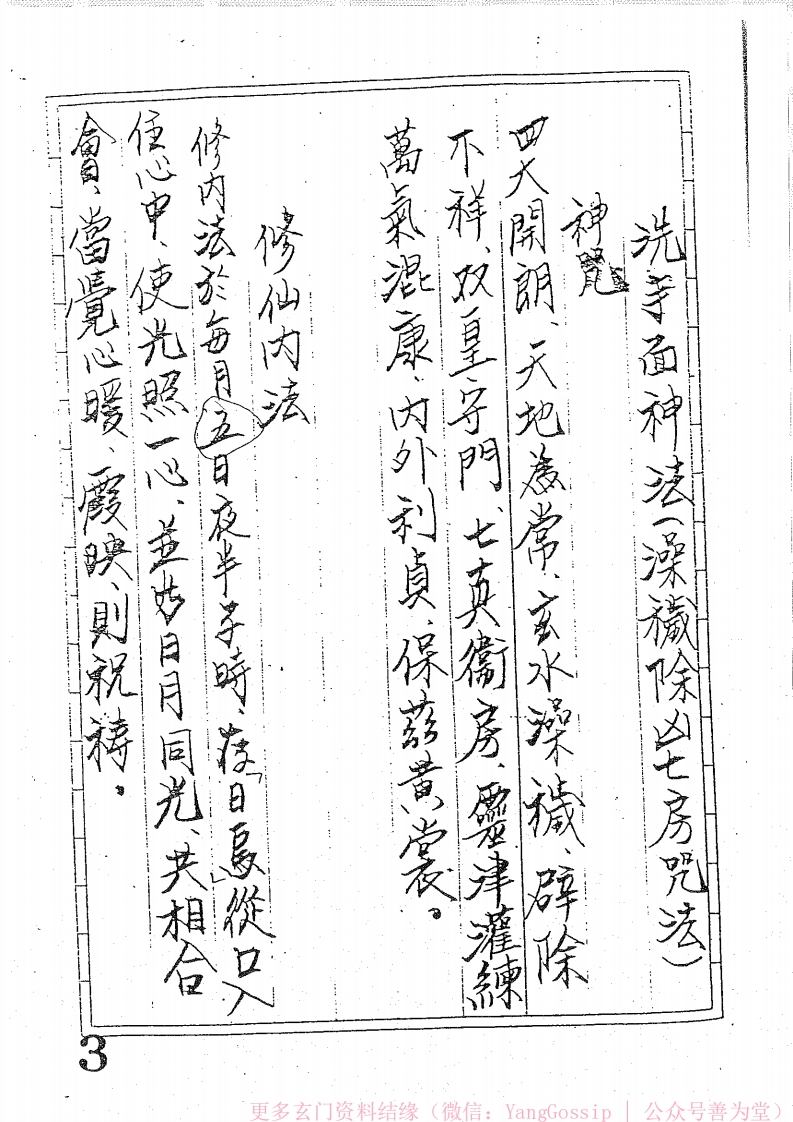 洗手面神法(澡穢除凶七房咒法)
神咒
四大開朗、天地為常、玄水澡穢、辟除
不祥、双皇守門、七真衞房、靈津灌練
萬氣混康、內外利貞、保茲黃裳。
修仙內法
修內法於每月五日夜半子時、存「日烏」從口入
住心中、使光照一心、並與日月同光、共相合
會、當覺心暖、霞映、則祝禱。
3
更多玄门资料结缘（微信：YangGossip | 公众号善为堂）